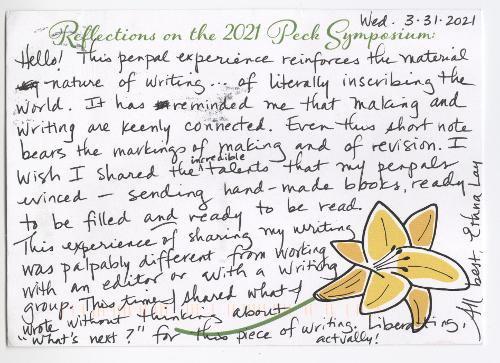 Wed. 3-31-2021
Reflections on the 2021 Peck Symposium:
Hello! This penpal experience reinforces the material
nature of writing... of literally inscribing the
world. It has reminded me that making and
writing are keenly connected. Even this short note
bears the markings of making and of revision. I
wish I shared the incredible talents that my penpals
evinced — sending hand-made books, ready
to be filled and ready to be read.
This experience of sharing my writing
was palpably different from working
with an editor or with a writing
group. This time I shared what I
wrote without thinking about
"what's next?" for this piece of writing. Liberating,
actually!
All best Ethna Lay